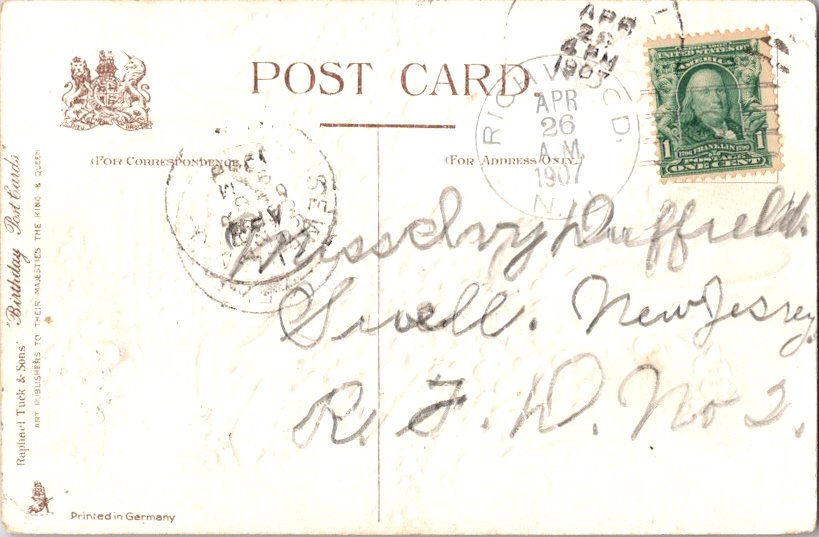 POST CARD
(FOR CORRESPONDENCE
(FOR ADDRESS ONLY.)
APR
26
4 PM
1907
RICHWOOD.
APR
26
A.M.
1907
N.J.
UNITED STATES OF
AMERICA
1 1706 FRANKLIN 1790 1
POSTAGE
ONE CENT
APR
Miss Ivy Duffield
Sewell. New Jersey
R. F. D. No 2.
Raphael Tuck & Sons' "Birthday Post Cards"
ART PUBLISHERS TO THEIR MAJESTIES THE KING & QUEEN
Printed in Germany